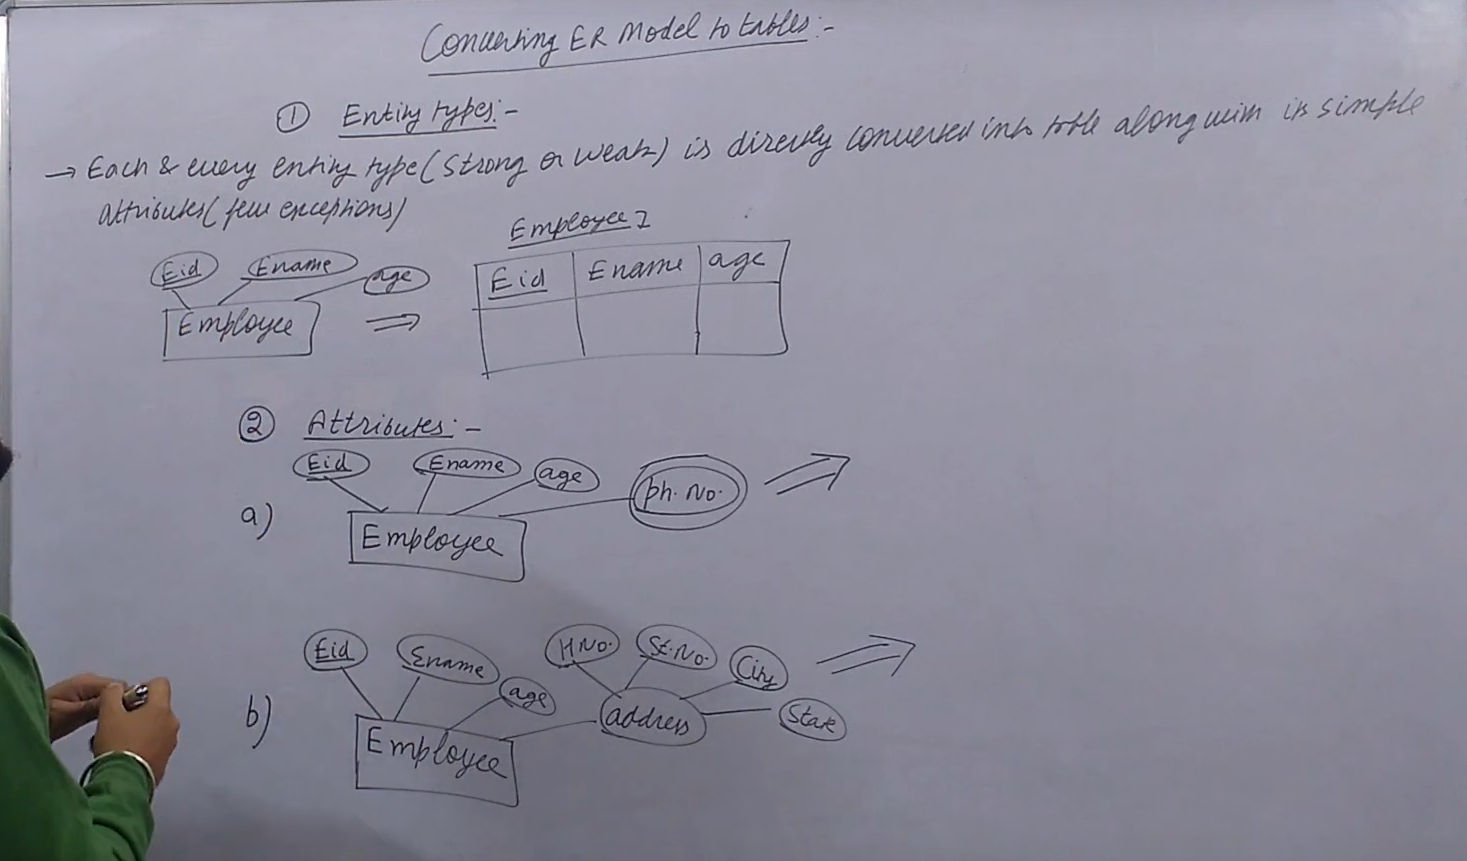 Converting ER Model to tables:-
① Entity types:-
→ Each & every entity type (Strong or weak) is directly converted into table along with its simple
attributes (few exceptions)
Employee
Eid Ename age
Employee
⇒
Eid Ename age
② Attributes:-
Eid Ename age ph. No.
a)
Employee
Eid Ename age
H No. St. No. City State
address
b)
Employee